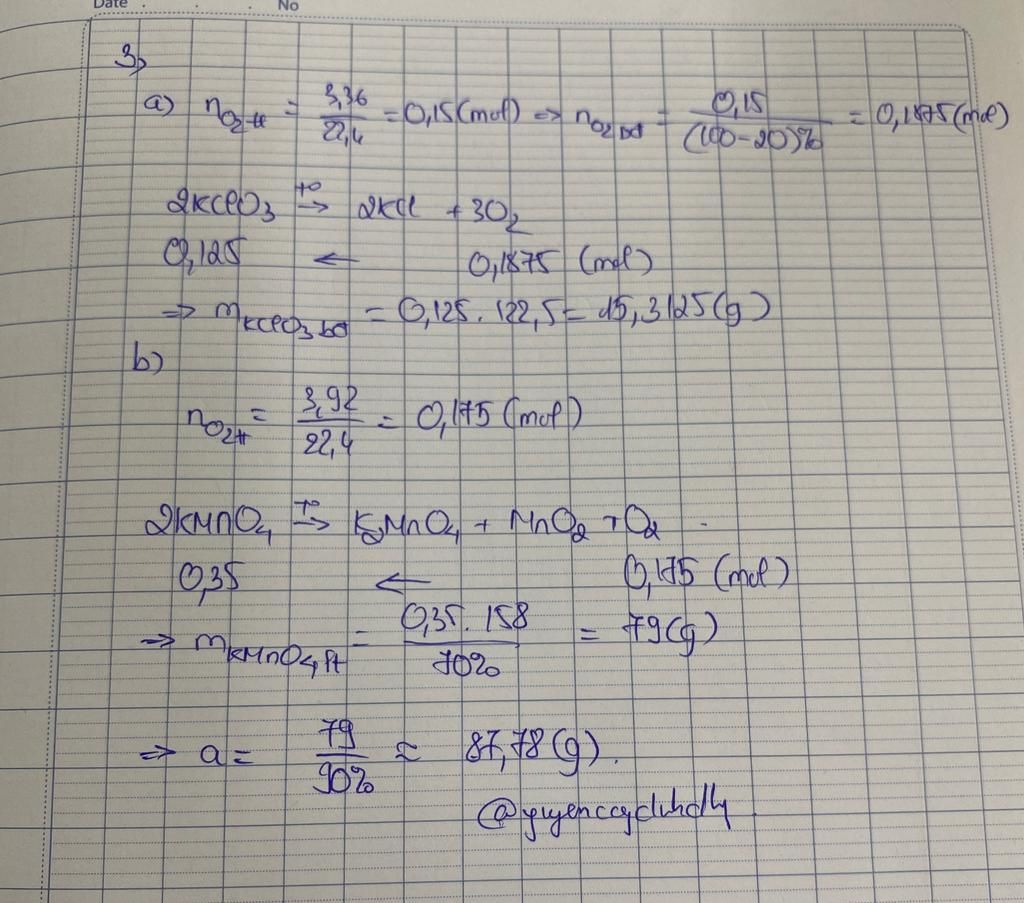 Date . . . No
3,
a) nO₂ tt = 3,36/22,4 = 0,15 (mol) => nO₂ bđ = 0,15/(100-20)% = 0,1875 (mol)
2KClO₃ t°→ 2KCl + 3O₂
0,125 ← 0,1875 (mol)
=> mKClO₃ bđ = 0,125. 122,5 = 15,3125 (g)
b)
nO₂ tt = 3,92/22,4 = 0,175 (mol)
2KMnO₄ t°→ K₂MnO₄ + MnO₂ + O₂
0,35 ← 0,175 (mol)
=> mKMnO₄ pt = 0,35. 158/70% = 79 (g)
=> a = 79/90% ≈ 87,78 (g).